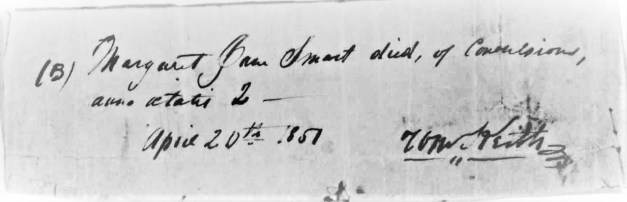 (B) Margaret Jane Smart died, of Convulsions,
anno ætatis 2 —
April 20th 1851 Wm. Keith